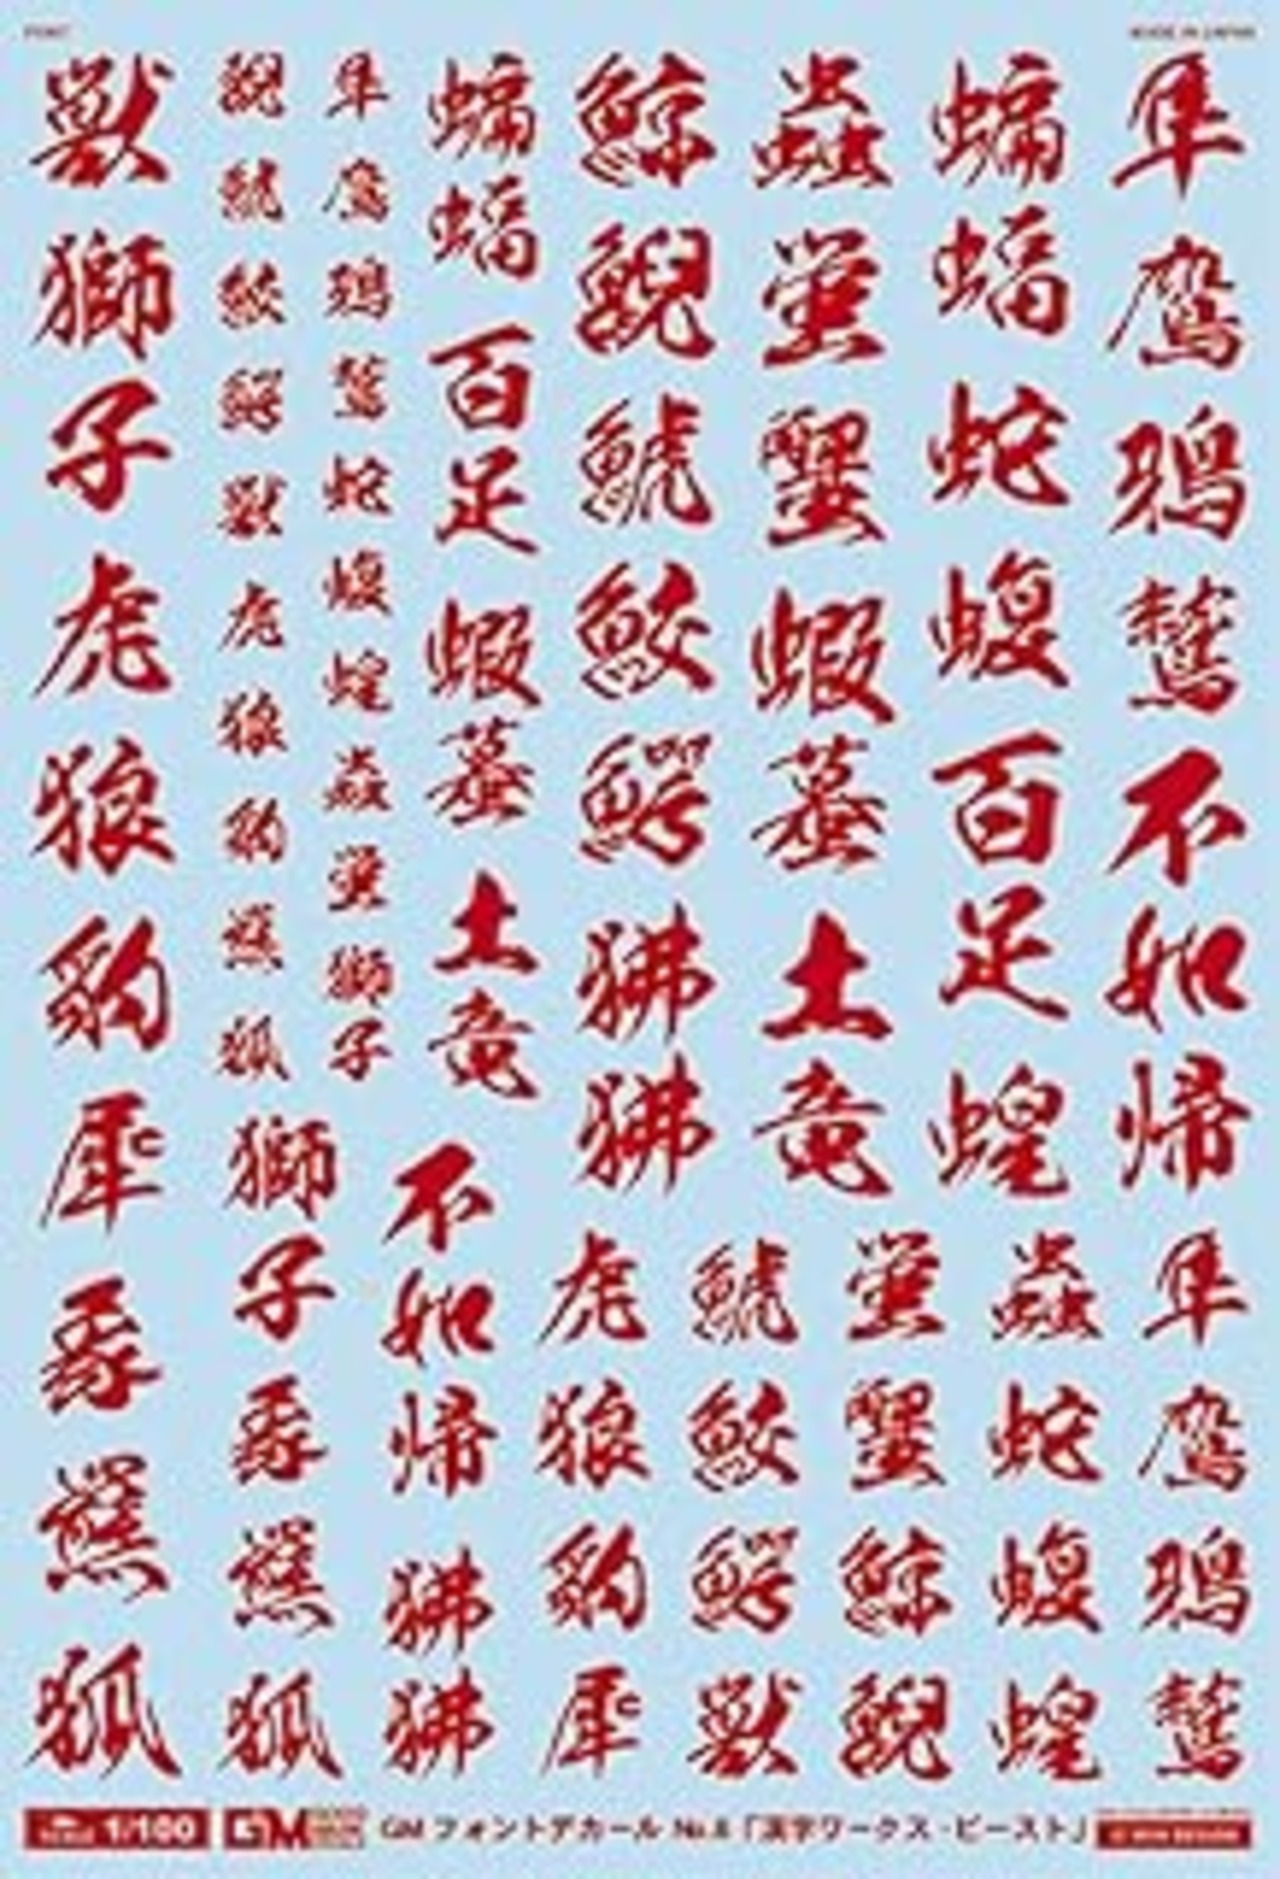 MADE IN JAPAN
隼鷹鴉鷲不如帰
蝙蝠蛇蝮百足蝗
蟲蛍蟹蝦蟇土竜
鯨鯢鯱鮫鰐狒狒
蝙蝠百足蝦蟇土竜
隼鷹鴉鷲蛇蝮蝗蟲蛍獅子
鯢鯱鮫鰐獣虎狼豹羆狐
獣獅子虎狼豹犀象羆狐
隼鷹鴉鷲
蟲蛇蝮蝗
蛍蟹鯨鯢
鯱鮫鰐獣
虎狼豹犀
不如帰狒狒
獅子象羆狐
1/100 GM GM フォントデカール No.8「漢字ワークス・ビースト」